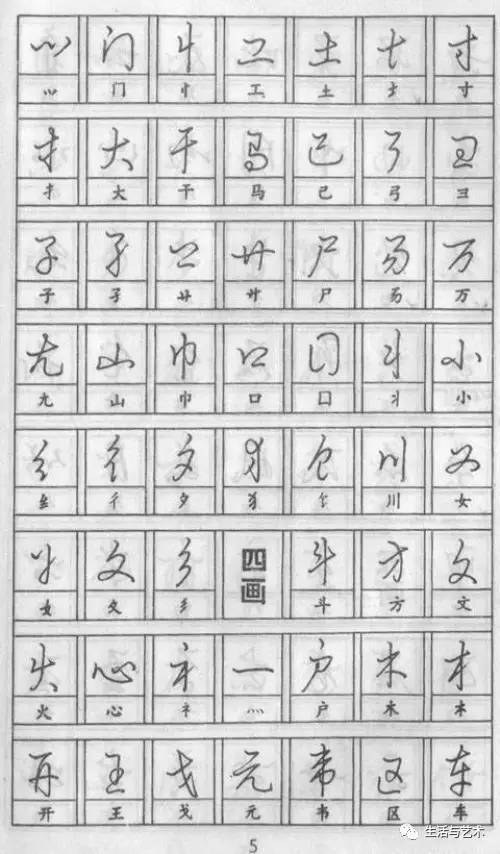 门 忄 工 土 士 寸
门 忄 工 土 士 寸
扌 大 干 马 已 弓 彐
扌 大 干 马 已 弓 彐
子 孑 廾 艹 尸 𠃓 万
子 孑 廾 艹 尸 𠃓 万
尢 山 巾 口 囗 丬 小
尢 山 巾 口 囗 丬 小
纟 彳 夕 犭 饣 川 女
纟 彳 夕 犭 饣 川 女
女 夂 彡 四画 斗 方 文
女 夂 彡 斗 方 文
火 心 礻 灬 户 木 木
火 心 礻 灬 户 木 木
开 王 戈 元 韦 区 车
开 王 戈 元 韦 区 车
生活与艺术
5